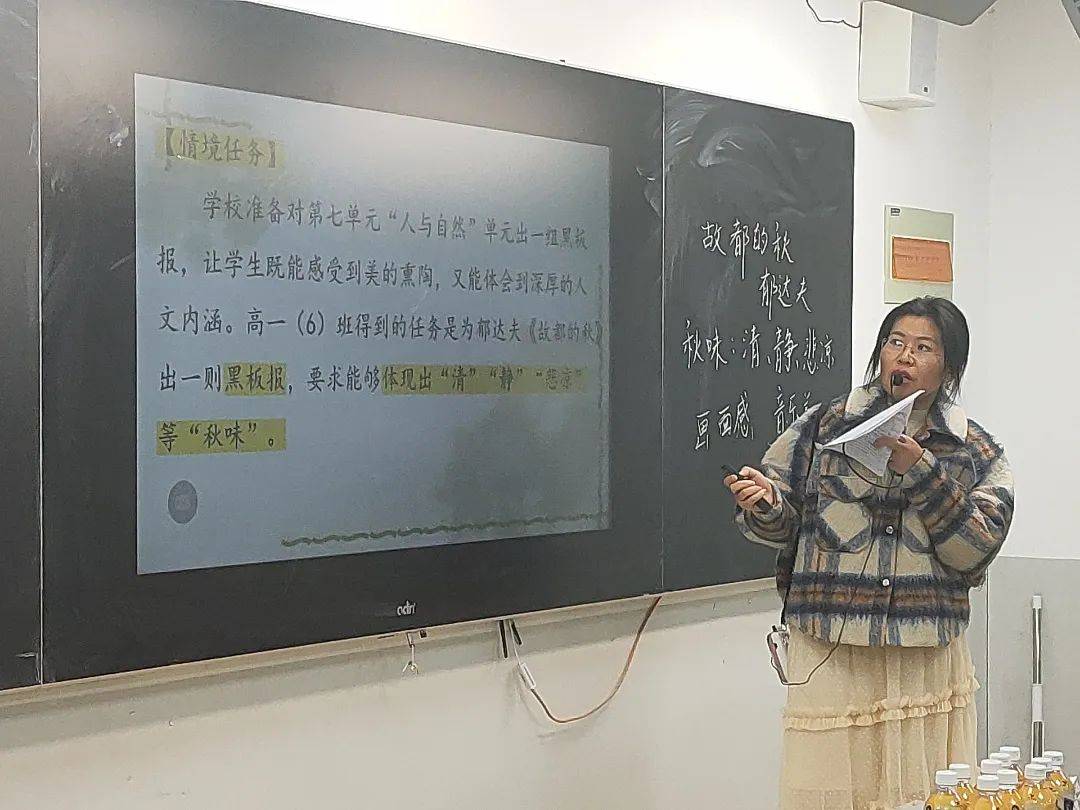 【情境任务】
学校准备对第七单元“人与自然”单元出一组黑板
报，让学生既能感受到美的熏陶，又能体会到深厚的人
文内涵。高一（6）班得到的任务是为郁达夫《故都的秋》
出一则黑板报，要求能够体现出“清”“静”“悲凉”
等“秋味”。
故都的秋
郁达夫
秋味：清、静、悲凉
画面感、音乐